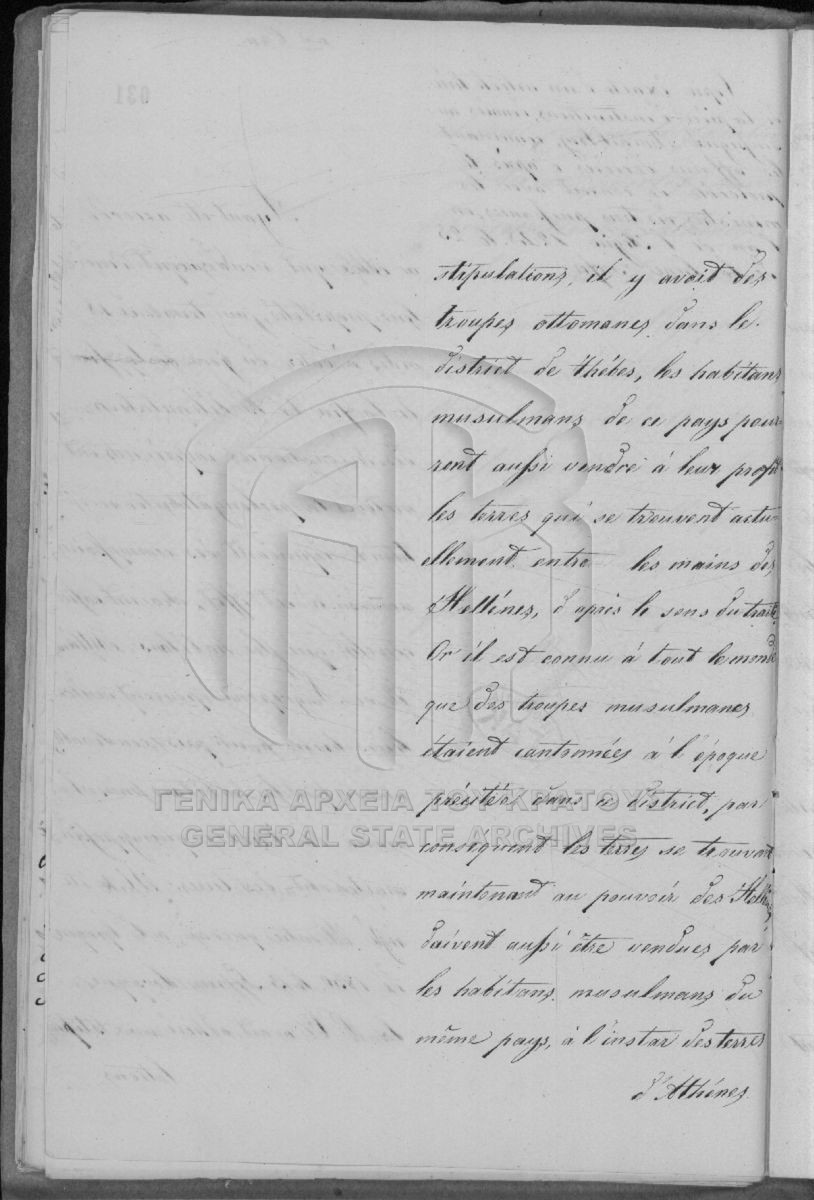 stipulations, il y avoit des
troupes ottomanes dans le
district de Thébes, les habitans
musulmans de ce pays pour-
ront aussi vendre à leur profit
les terres qui se trouvent actu-
ellement entre les mains des
Hellénes, d'aprés le sens du traité.
Or il est connu à tout le monde
que des troupes musulmanes
étaient cantonnées à l'époque
précitée dans ce district, par
conséquent les terres se trouvant
maintenant au pouvoir des Hellénes
doivent aussi être vendues par
les habitans musulmans du
même pays, à l'instar des terres
d'Athénes
ΓΕΝΙΚΑ ΑΡΧΕΙΑ ΤΟΥ ΚΡΑΤΟΥΣ
GENERAL STATE ARCHIVES